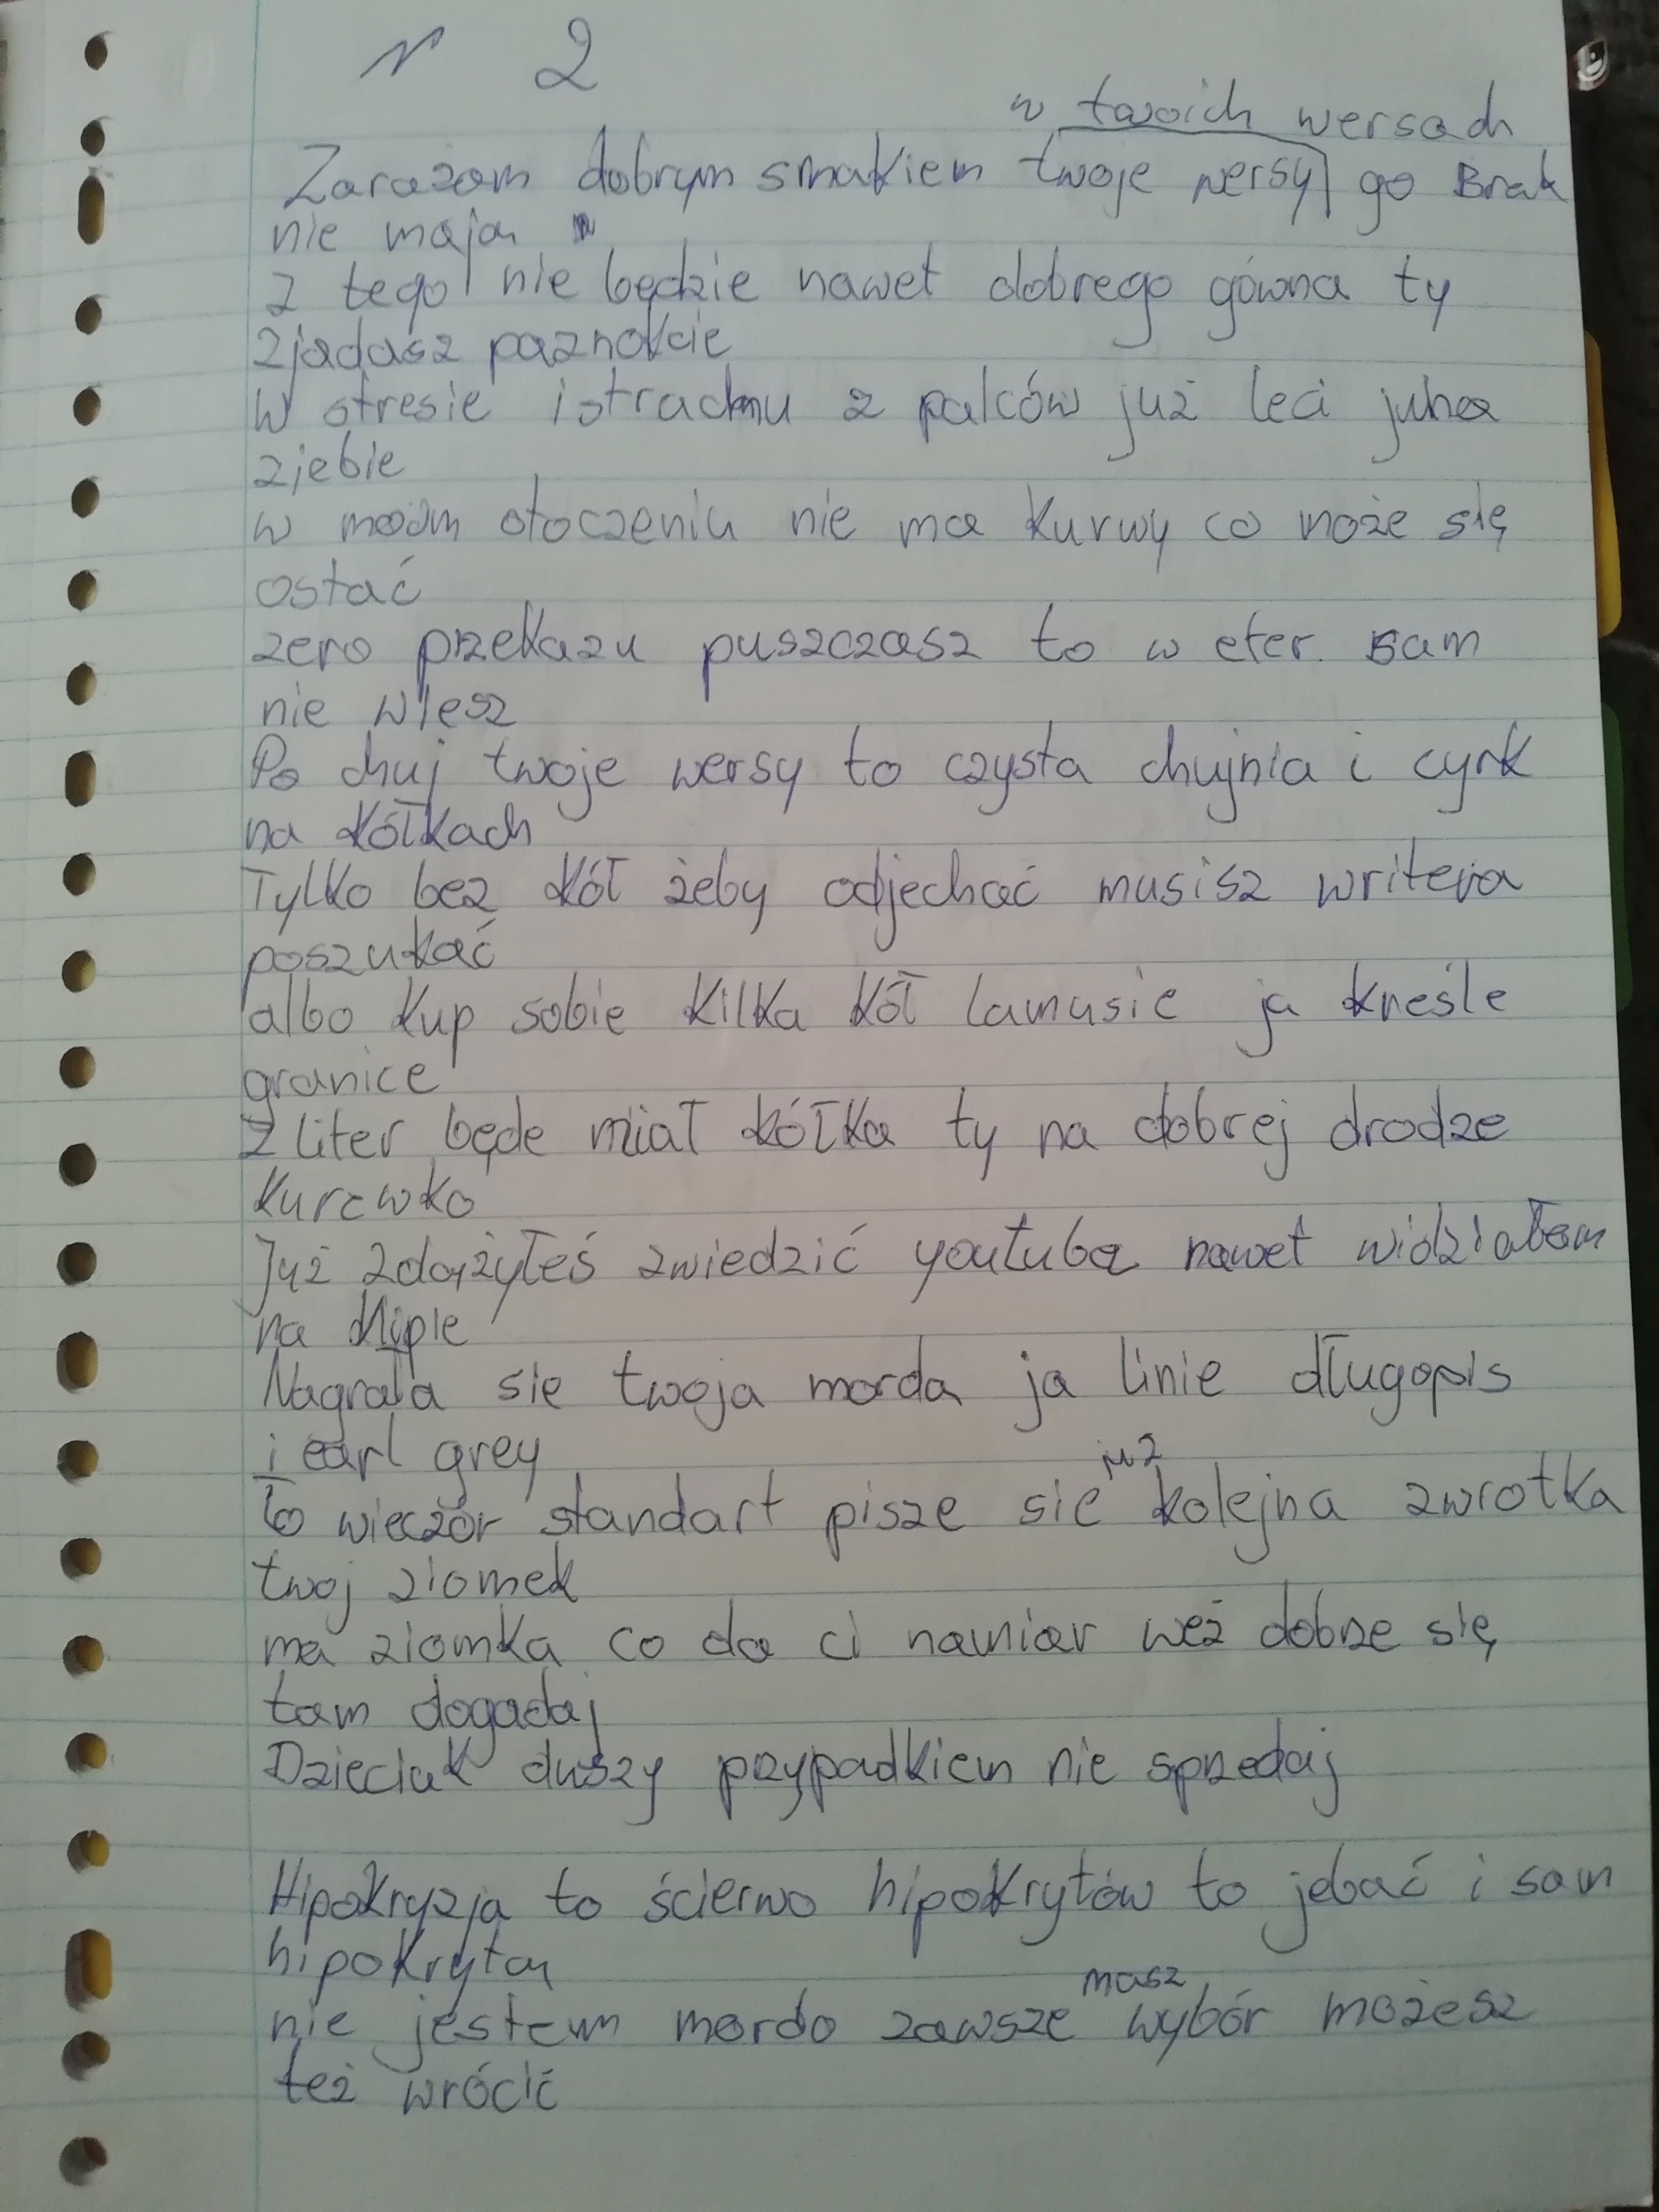 N 2
w twoich wersach
Zarażam dobrym smakiem twoje wersy go Brak
nie mają
z tego nie będzie nawet dobrego gówna ty
zjadasz paznokcie
W stresie i strachu z palców już leci jucha
zjebie
w moim otoczeniu nie ma kurwy co może się
ostać
zero przekazu puszczasz to w eter sam
nie wiesz
Po chuj twoje wersy to czysta chujnia i cyrk
na kółkach
Tylko bez kół żeby odjechać musisz writera
poszukać
albo kup sobie kilka kół lamusie ja kreśle
granice
Z liter będe miał kółka ty na dobrej drodze
kurewko
Już zdążyłeś zwiedzić youtuba nawet widziałem
na klipie
Nagrała sie twoja morda ja linie długopis
i earl grey
już
to wieczór standart pisze sie kolejna zwrotka
twoj ziomek
ma ziomka co da ci namiar weź dobrze się
tam dogadaj
Dzieciak duszy przypadkiem nie sprzedaj
Hipokryzja to ścierwo hipokrytów to jebać i sam
hipokrytą
masz
nie jestem mordo zawsze wybór możesz
też wrócić